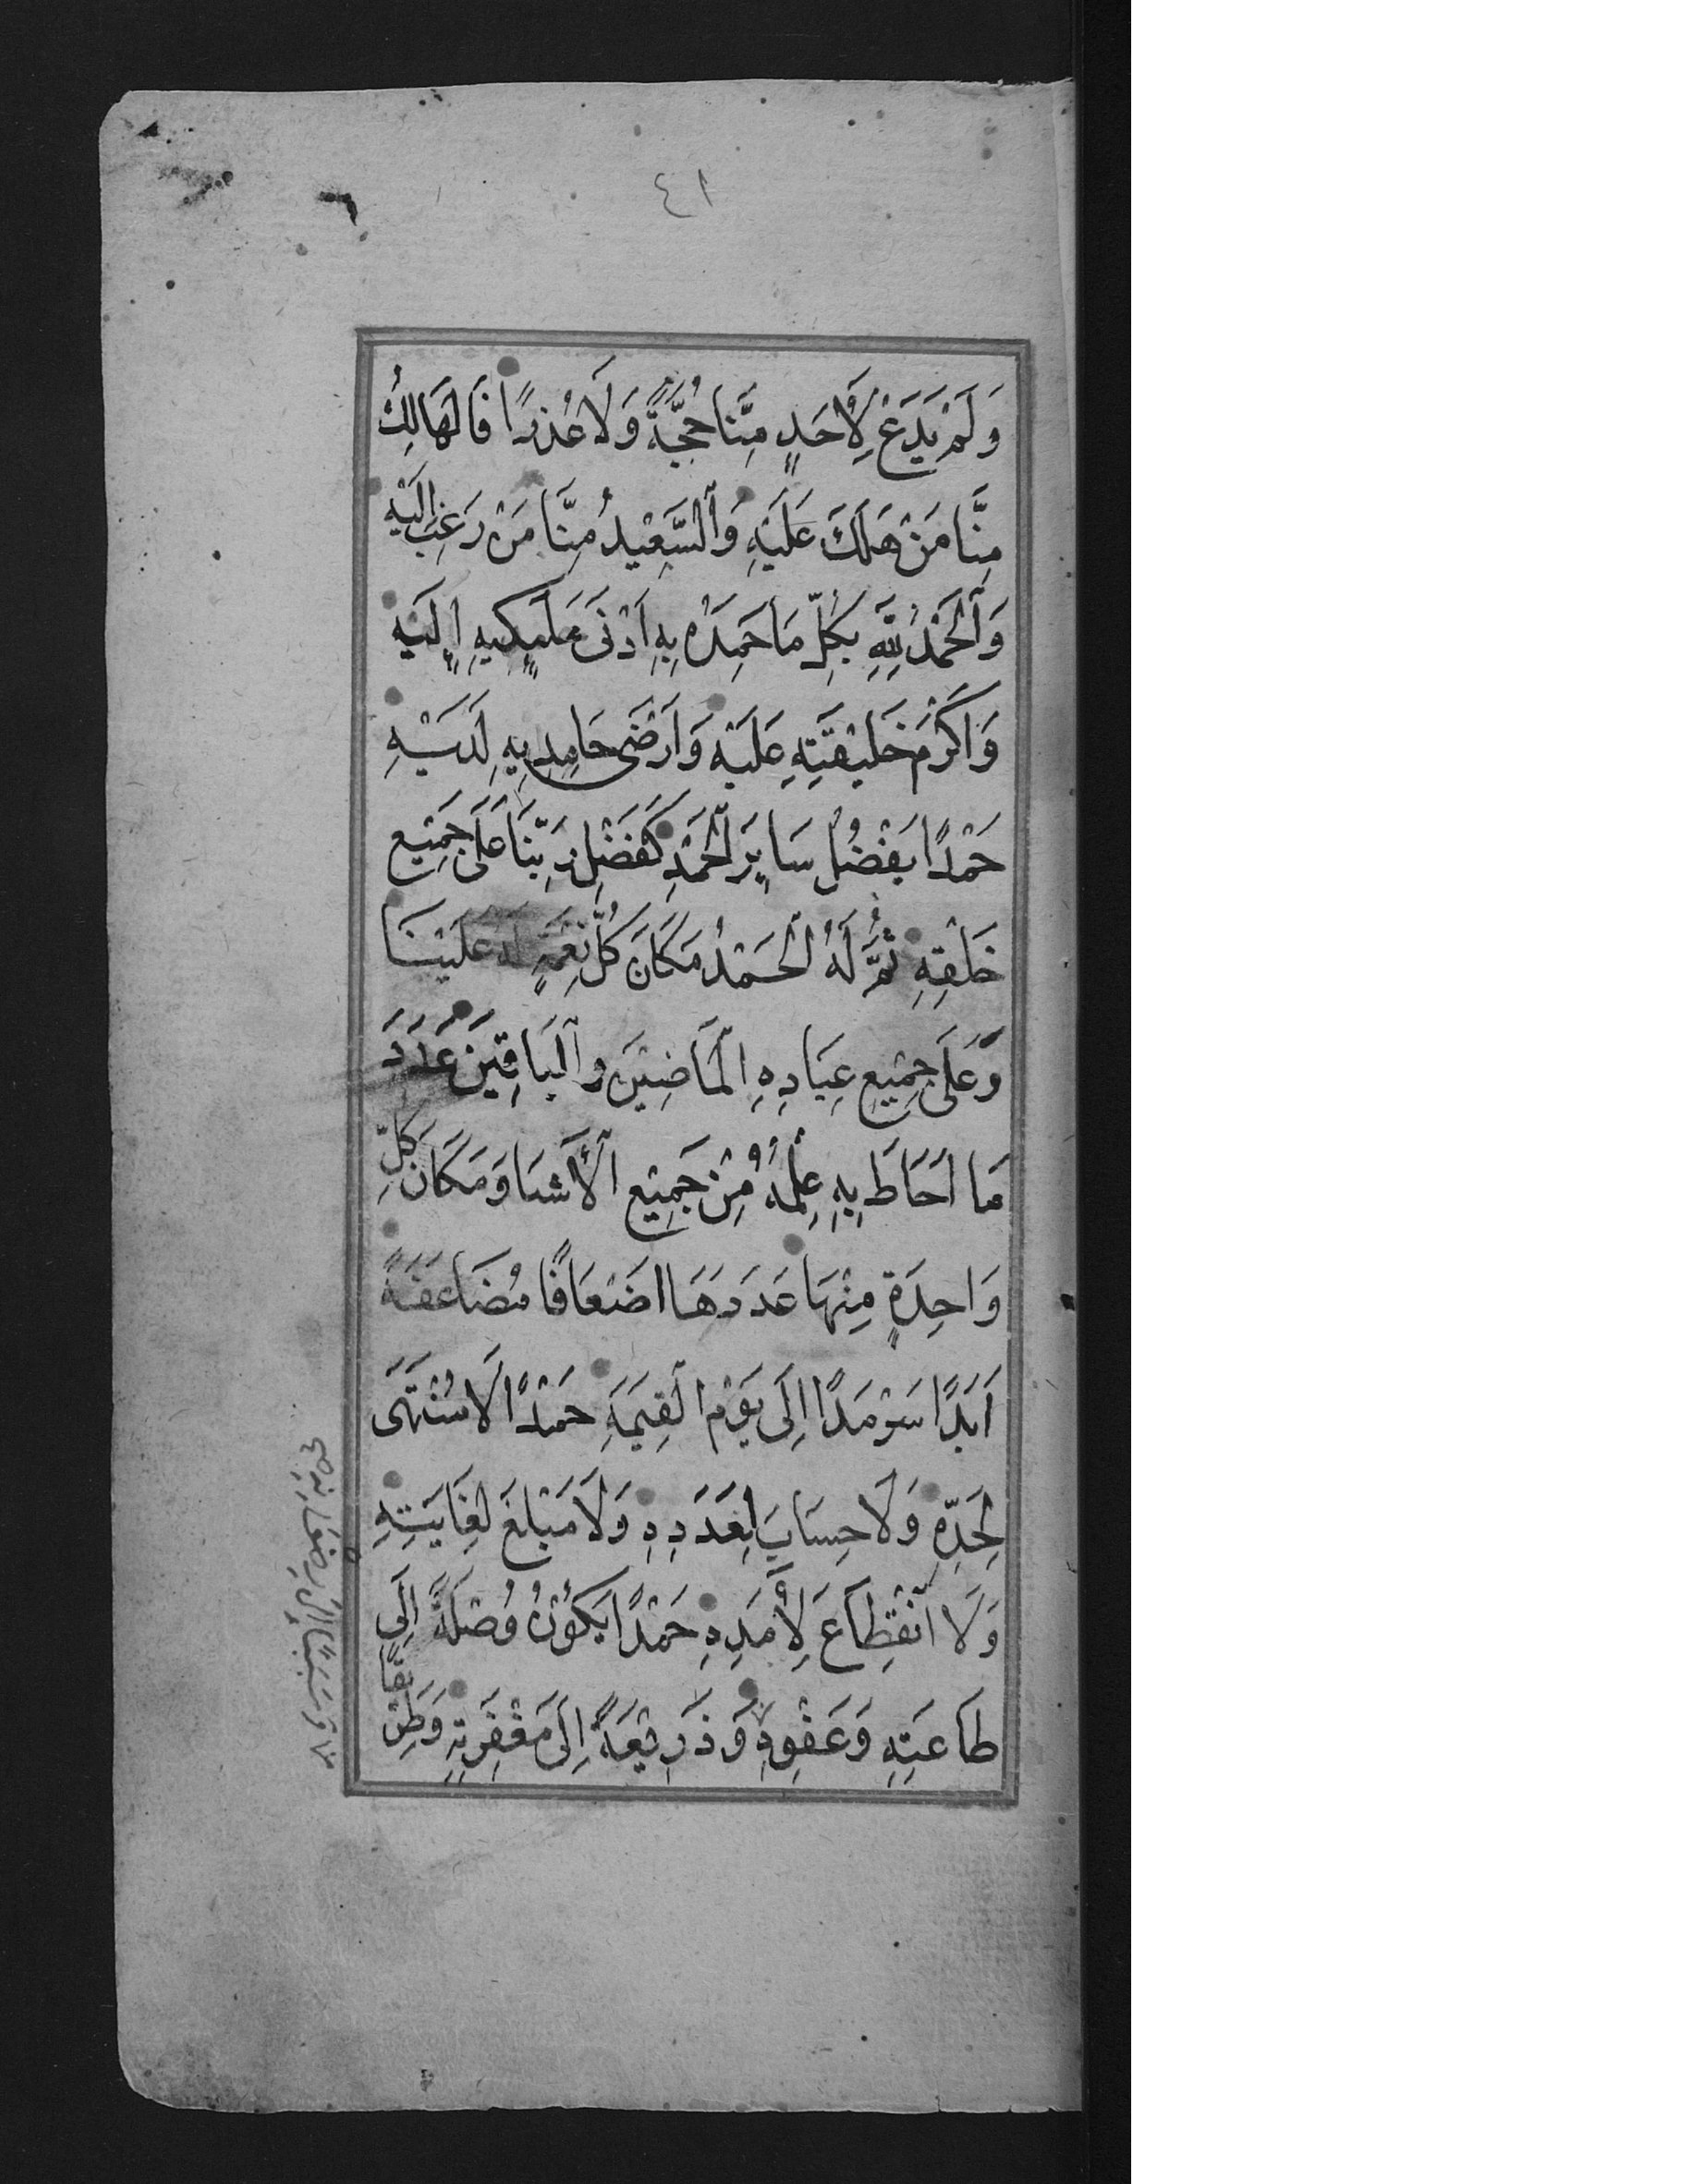 ٤١
وَلَمْ يَدَعْ لِأَحَدٍ مِنَّا حُجَّةً وَلَا عُذْرًا فَالهَالِكُ
مِنَّا مَنْ هَلَكَ عَلَيْهِ وَالسَّعِيْدُ مِنَّا مَنْ رَغِبَ اِلَيْهِ
وَالْحَمْدُ لِلَّهِ بِكُلِّ مَا حَمِدَهُ بِهِ اَدْنَى مَلَئِكَتِهِ اِلَيْهِ
وَاَكْرَمُ خَلِيْقَتِهِ عَلَيْهِ وَاَرْضَى حَامِدِيهِ لَدَيْهِ
حَمْدًا يَفْضُلُ سَايِرَ الْحَمْدِ كَفَضْلِ رَبِّنَا عَلَى جَمِيْعِ
خَلْقِهِ ثُمَّ لَهُ الْحَمْدُ مَكَانَ كُلِّ نِعْمَةٍ لَهُ عَلَيْنَا
وَعَلَى جَمِيْعِ عِبَادِهِ الْمَاضِيْنَ وَالْبَاقِيْنَ عَدَدَ
مَا اَحَاطَ بِهِ عِلْمُهُ مِنْ جَمِيْعِ الْأَشيَا وَمَكَانَ كُلِّ
وَاحِدَةٍ مِنْهَا عَدَدَهَا اضْعَافًا مُضَاعَفَةً
اَبَدًا سَرْمَدًا اِلَى يَوْمِ الْقِيَمَةِ حَمْدًا لَا مُنْتَهَى
لِحَدِّهِ وَلَا حِسَابَ لِعَدَدِهِ وَلَا مَبْلَغَ لِغَايَتِهِ
وَلَا انْقِطَاعَ لِأَمَدِهِ حَمْدًا يَكُوْنُ وُصْلَةً اِلَى
طَاعَتِهِ وَعَفْوِهِ وَذَرِيْعَةً اِلَى مَغْفِرَتِهِ وَطَرِيْقًا